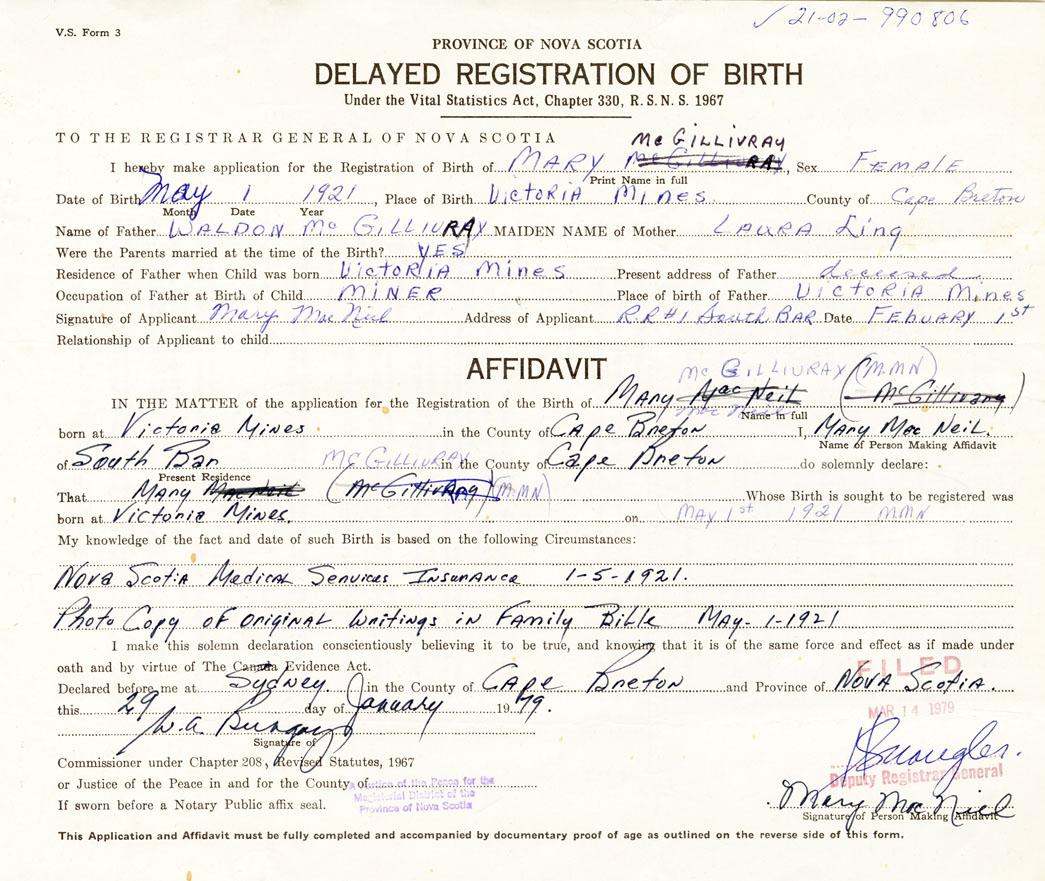 V.S. Form 3
✓ 21-02-990806
PROVINCE OF NOVA SCOTIA
DELAYED REGISTRATION OF BIRTH
Under the Vital Statistics Act, Chapter 330, R. S. N. S. 1967
TO THE REGISTRAR GENERAL OF NOVA SCOTIA
McGILLIVRAY
I hereby make application for the Registration of Birth of MARY McGillivRAy, Sex FEMALE
Print Name in full
Date of Birth May 1 1921, Place of Birth Victoria Mines County of Cape Breton
Month Date Year
Name of Father WALDON McGILLIVRAY MAIDEN NAME of Mother LAURA Ling
Were the Parents married at the time of the Birth? YES
Residence of Father when Child was born Victoria Mines Present address of Father deceased
Occupation of Father at Birth of Child MINER Place of birth of Father Victoria Mines
Signature of Applicant Mary Mac Niel Address of Applicant R.R#1 South BAR Date FEbUARY 1st
Relationship of Applicant to child
AFFIDAVIT
McGILLIVRAY (M.MN)
IN THE MATTER of the application for the Registration of the Birth of Mary Mac Neil (McGillivary)
Mac Neil Name in full
born at Victoria Mines in the County of Cape Breton I, Mary Mac Neil.
Name of Person Making Affidavit
of South Bar McGILLIVRAY in the County of Cape Breton do solemnly declare:
Present Residence
That Mary MacNeil (McGillivRAy) (M.MN) Whose Birth is sought to be registered was
born at Victoria Mines. on MAY 1st 1921 M.MN
My knowledge of the fact and date of such Birth is based on the following Circumstances:
Nova Scotia Medical Services Insurance 1-5-1921.
Photo Copy of original writings in Family Bible May-1-1921
I make this solemn declaration conscientiously believing it to be true, and knowing that it is of the same force and effect as if made under
oath and by virtue of The Canada Evidence Act.
FILED
Declared before me at Sydney. in the County of Cape Breton and Province of Nova Scotia.
this 29 day of January 1979.
MAR 14 1979
W.A.
Signature of
Commissioner under Chapter 208, Revised Statutes, 1967
Deputy Registrar General
or Justice of the Peace in and for the County of
A Justice of the Peace for the
Magisterial District of the
Province of Nova Scotia
Mary Mac Niel
If sworn before a Notary Public affix seal.
Signature of Person Making Affidavit
This Application and Affidavit must be fully completed and accompanied by documentary proof of age as outlined on the reverse side of this form.